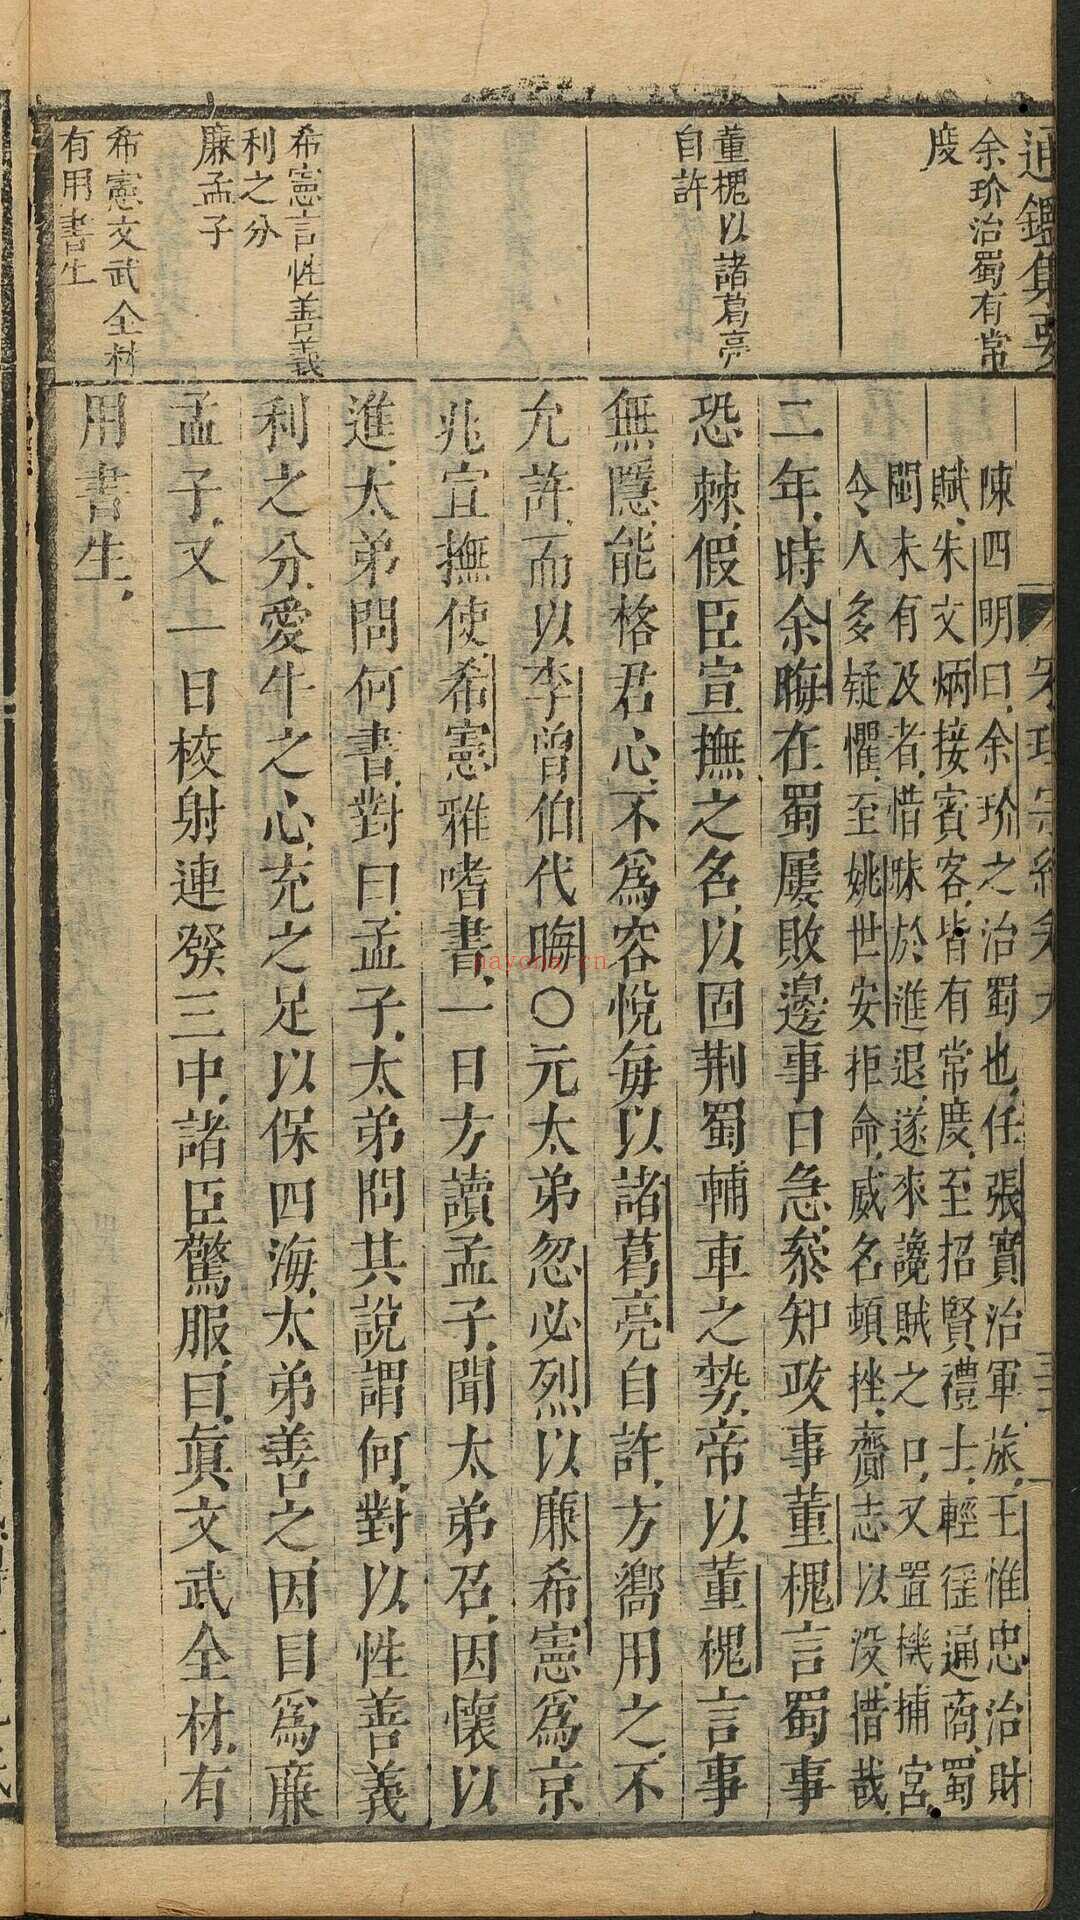 通鑑集要
余玠治蜀有常
度
董槐以諸葛亮
自許
希憲言性善義
利之分
廉孟子
希憲文武全材
有用書生
陳四明曰余玠之治蜀也任張實治軍旅王惟忠治財
賦朱文炳接賓客皆有常度至招賢禮士輕徭通商蜀
閫未有及者惜昧於進退遂來讒賊之口又置機捕官
令人多疑懼至姚世安拒命威名頓挫齎志以没惜哉
二年時余晦在蜀屢敗邊事日急叅知政事董槐言蜀事
恐棘假臣宣撫之名以固荆蜀輔車之势帝以董槐言事
無隱能格君心不爲容悅每以諸葛亮自許方嚮用之不
允許而以李曾伯代晦○元太弟忽必烈以廉希憲爲京
兆宣撫使希憲雅嗜書一日方讀孟子聞太弟召因懷以
進太弟問何書對曰孟子太弟問其說謂何對以性善義
利之分愛牛之心充之足以保四海太弟善之因目爲廉
孟子又一日校射連發三中諸臣驚服曰眞文武全材有
用書生
nayona.cn